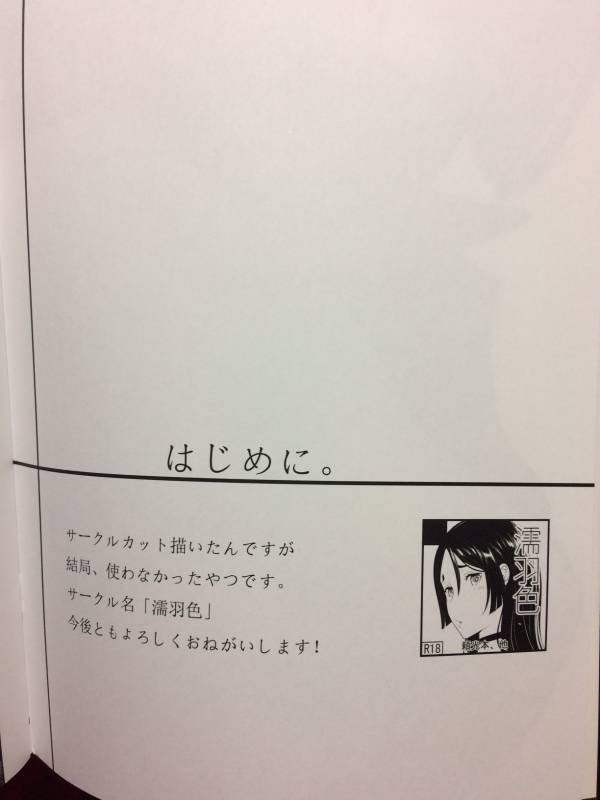 はじめに。
サークルカット描いたんですが
結局、使わなかったやつです。
サークル名「濡羽色」
今後ともよろしくおねがいします!
濡羽色
R18
頼光本、他